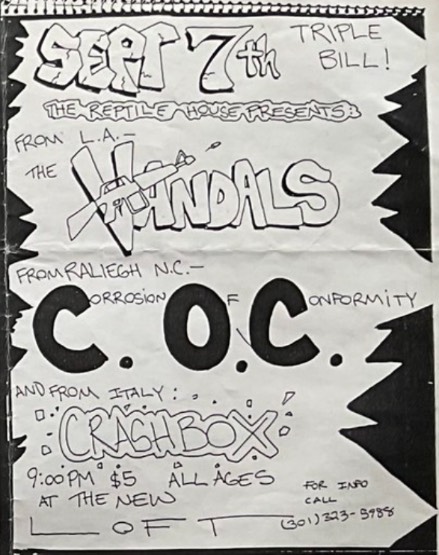 SEPT 7th
TRIPLE
BILL!
THE REPTILE HOUSE PRESENTS:
FROM L.A.-
THE VANDALS
FROM RALIEGH N.C.-
CORROSION OF CONFORMITY
C.O.C.
AND FROM ITALY:
CRASHBOX
9:00PM $5 ALL AGES
AT THE NEW
LOFT
FOR INFO
CALL
(301) 323-5988